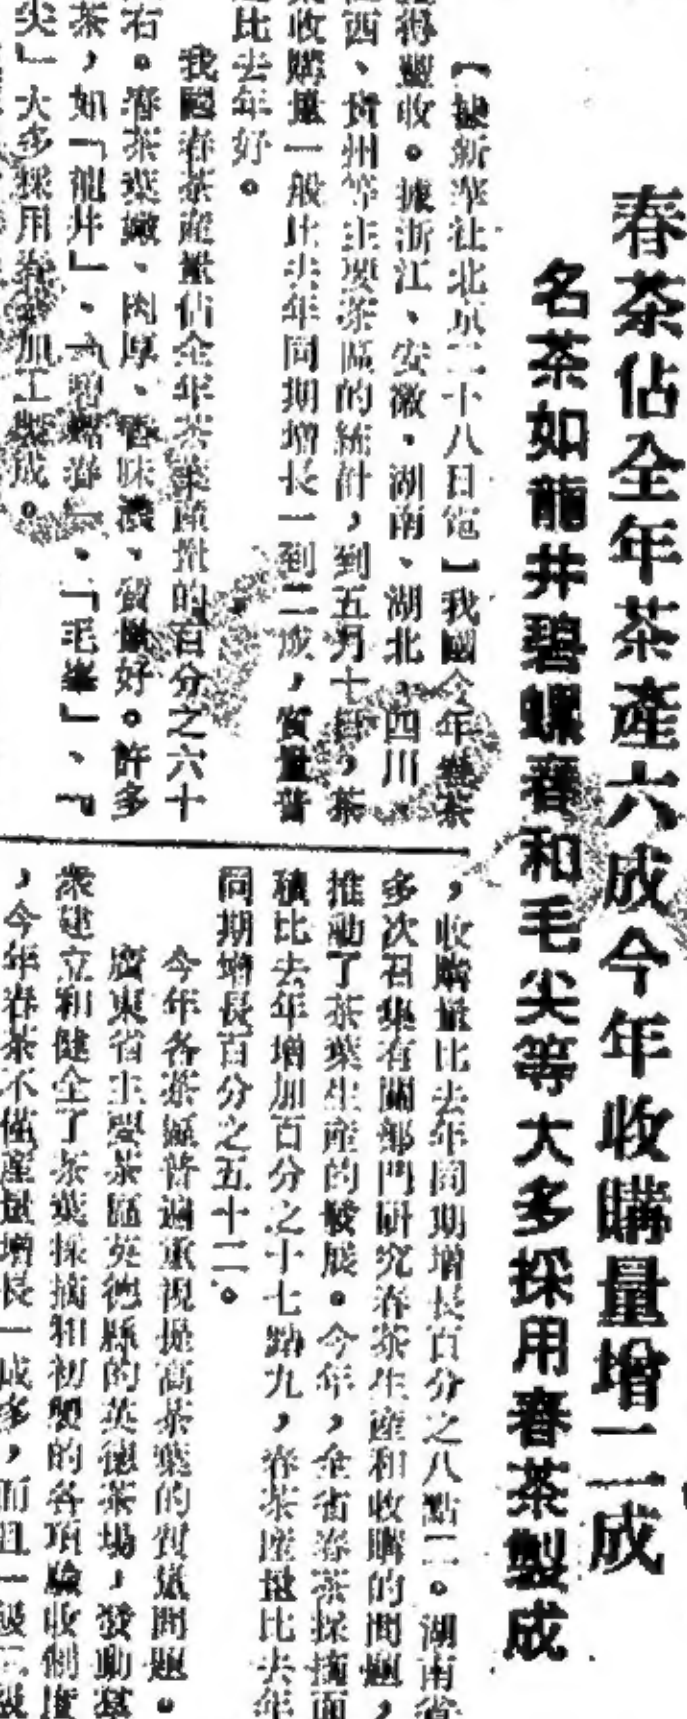 春茶佔全年茶產六成今年收購量增一二成
名茶如龍井碧螺春和毛尖等大多採用春茶製成
【據新華社北京二十八日電】我國今年春茶
得豐收。據浙江、安徽、湖南、湖北、四川、
西、貴州等主要茶區的統計，到五月十日，茶
收購量一般比去年同期增長一到二成，質量普
比去年好。
我國春茶產量佔全年茶葉產量的百分之六十
右。春茶葉嫩、肉厚、香味濃、質量好。許多
茶，如「龍井」、「碧螺春」、「毛峯」、「
尖」大多採用春茶加工製成。
，收購量比去年同期增長百分之八點二。湖南省
多次召集有關部門研究春茶生產和收購的問題，
推動了茶葉生產的發展。今年，全省春茶採摘面
積比去年增加百分之十七點九，春茶產量比去年
同期增長百分之五十二。
今年各茶區普遍重視提高茶葉的質量問題。
廣東省主要茶區英德縣的英德茶場，發動羣
衆建立和健全了茶葉採摘和初製的各項驗收制度
，今年春茶不僅產量增長一成多，而且一級二級